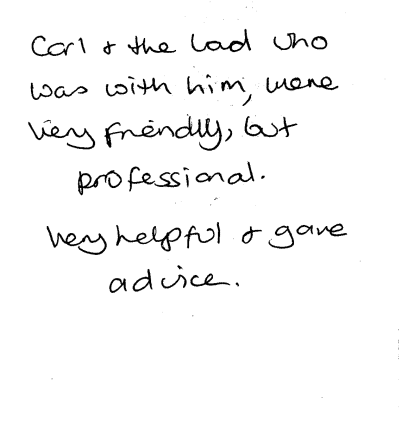 Carl & the lad who
was with him, were
very friendly, but
professional.
Very helpful & gave
advice.